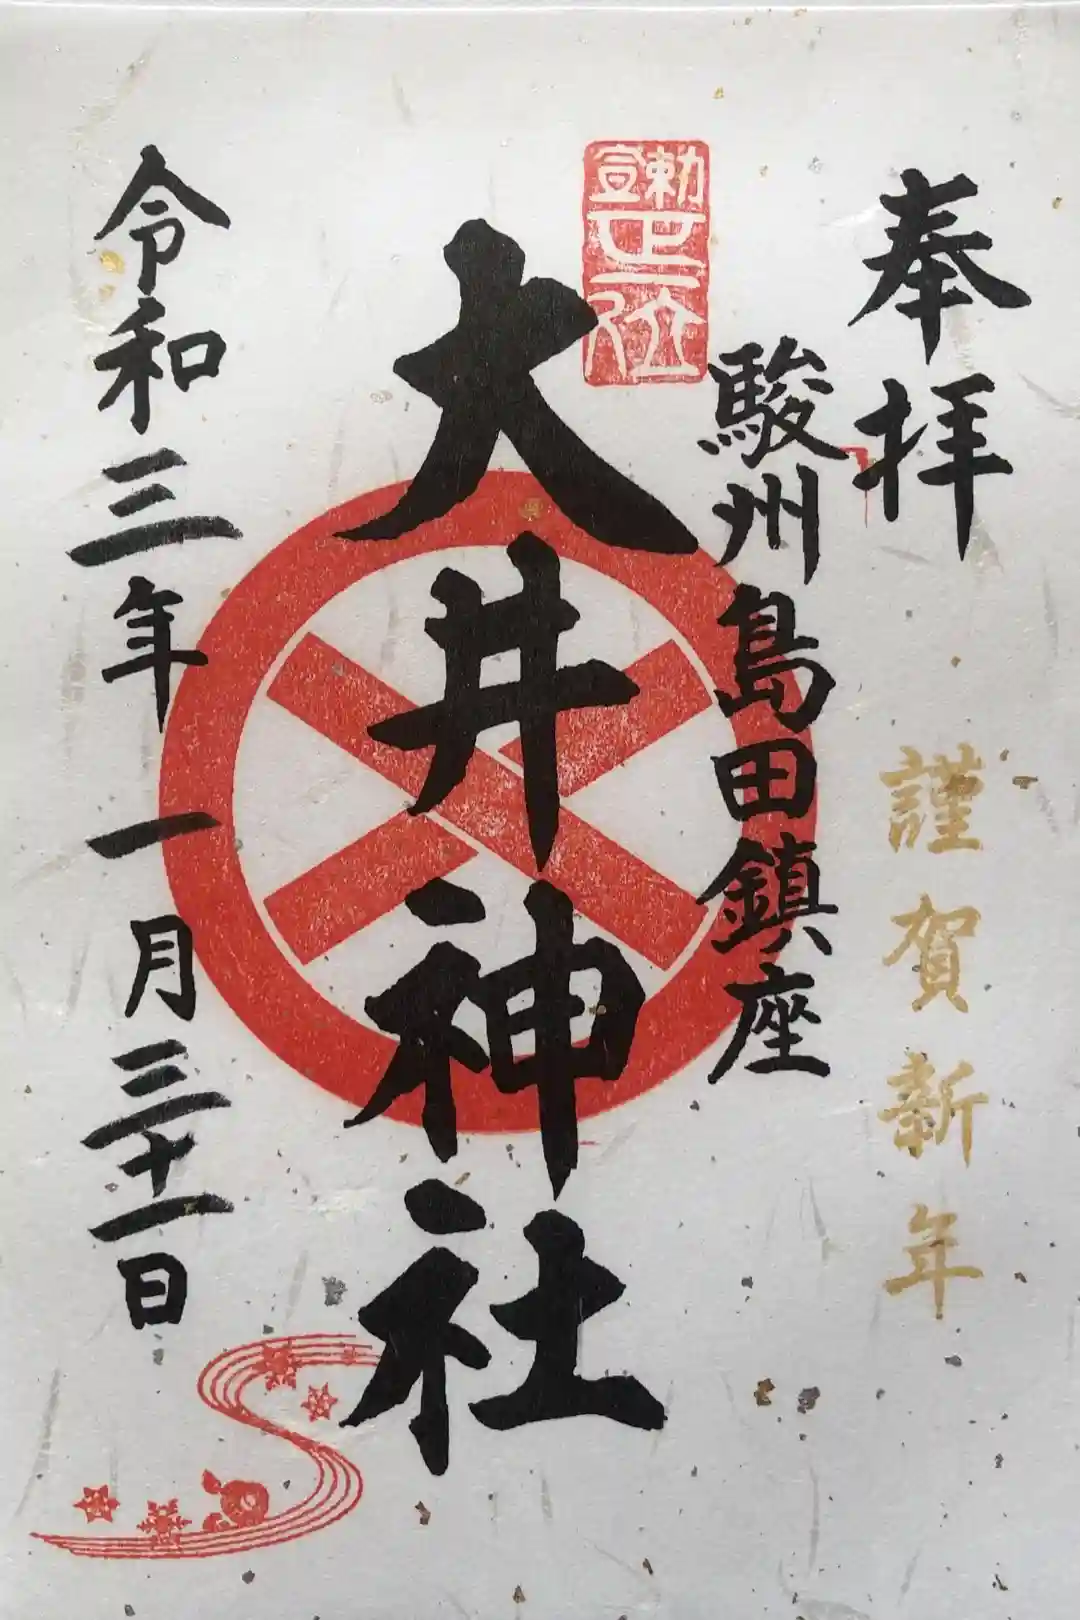 奉拝
謹賀新年
駿州島田鎮座
勅宣正一位
大井神社
令和三年一月三十一日